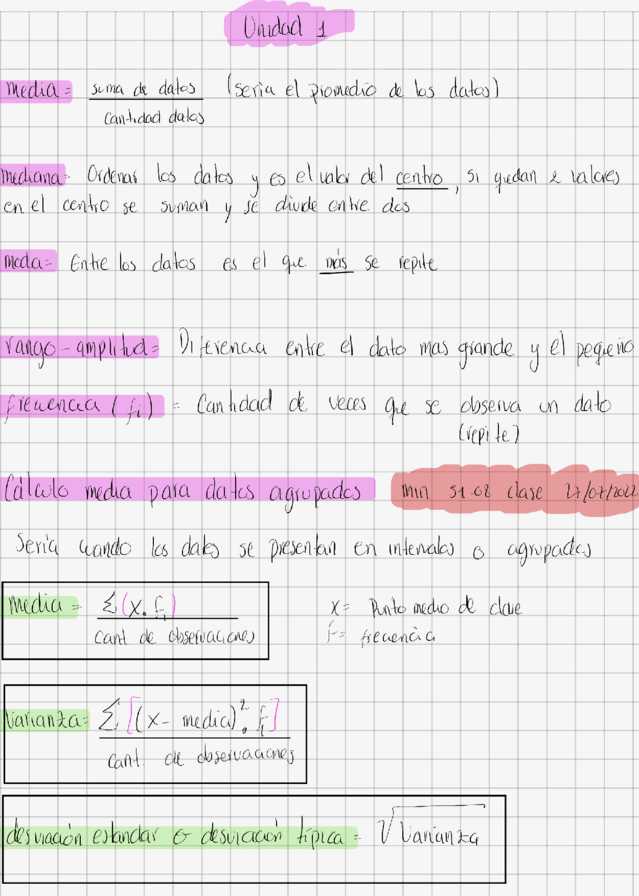 Unidad 1
media = suma de datos (seria el promedio de los datos)
cantidad datos
mediana = Ordenar los datos y es el valor del centro, si quedan 2 valores
en el centro se suman y se divide entre dos
moda = Entre los datos es el que más se repite
rango - amplitud = Diferencia entre el dato mas grande y el pequeño
frecuencia (fi) = Cantidad de veces que se observa un dato
(repite)
Cálculo media para datos agrupados min 51:08 clase 27/07/2022
Seria cuando los datos se presentan en intervalos o agrupados
media = Σ(x · fi)
cant de observaciones
x = Punto medio de clase
f = frecuencia
Varianza = Σ[(x - media)² · fi]
cant. de observaciones
desviación estandar o desviación típica = √Varianza